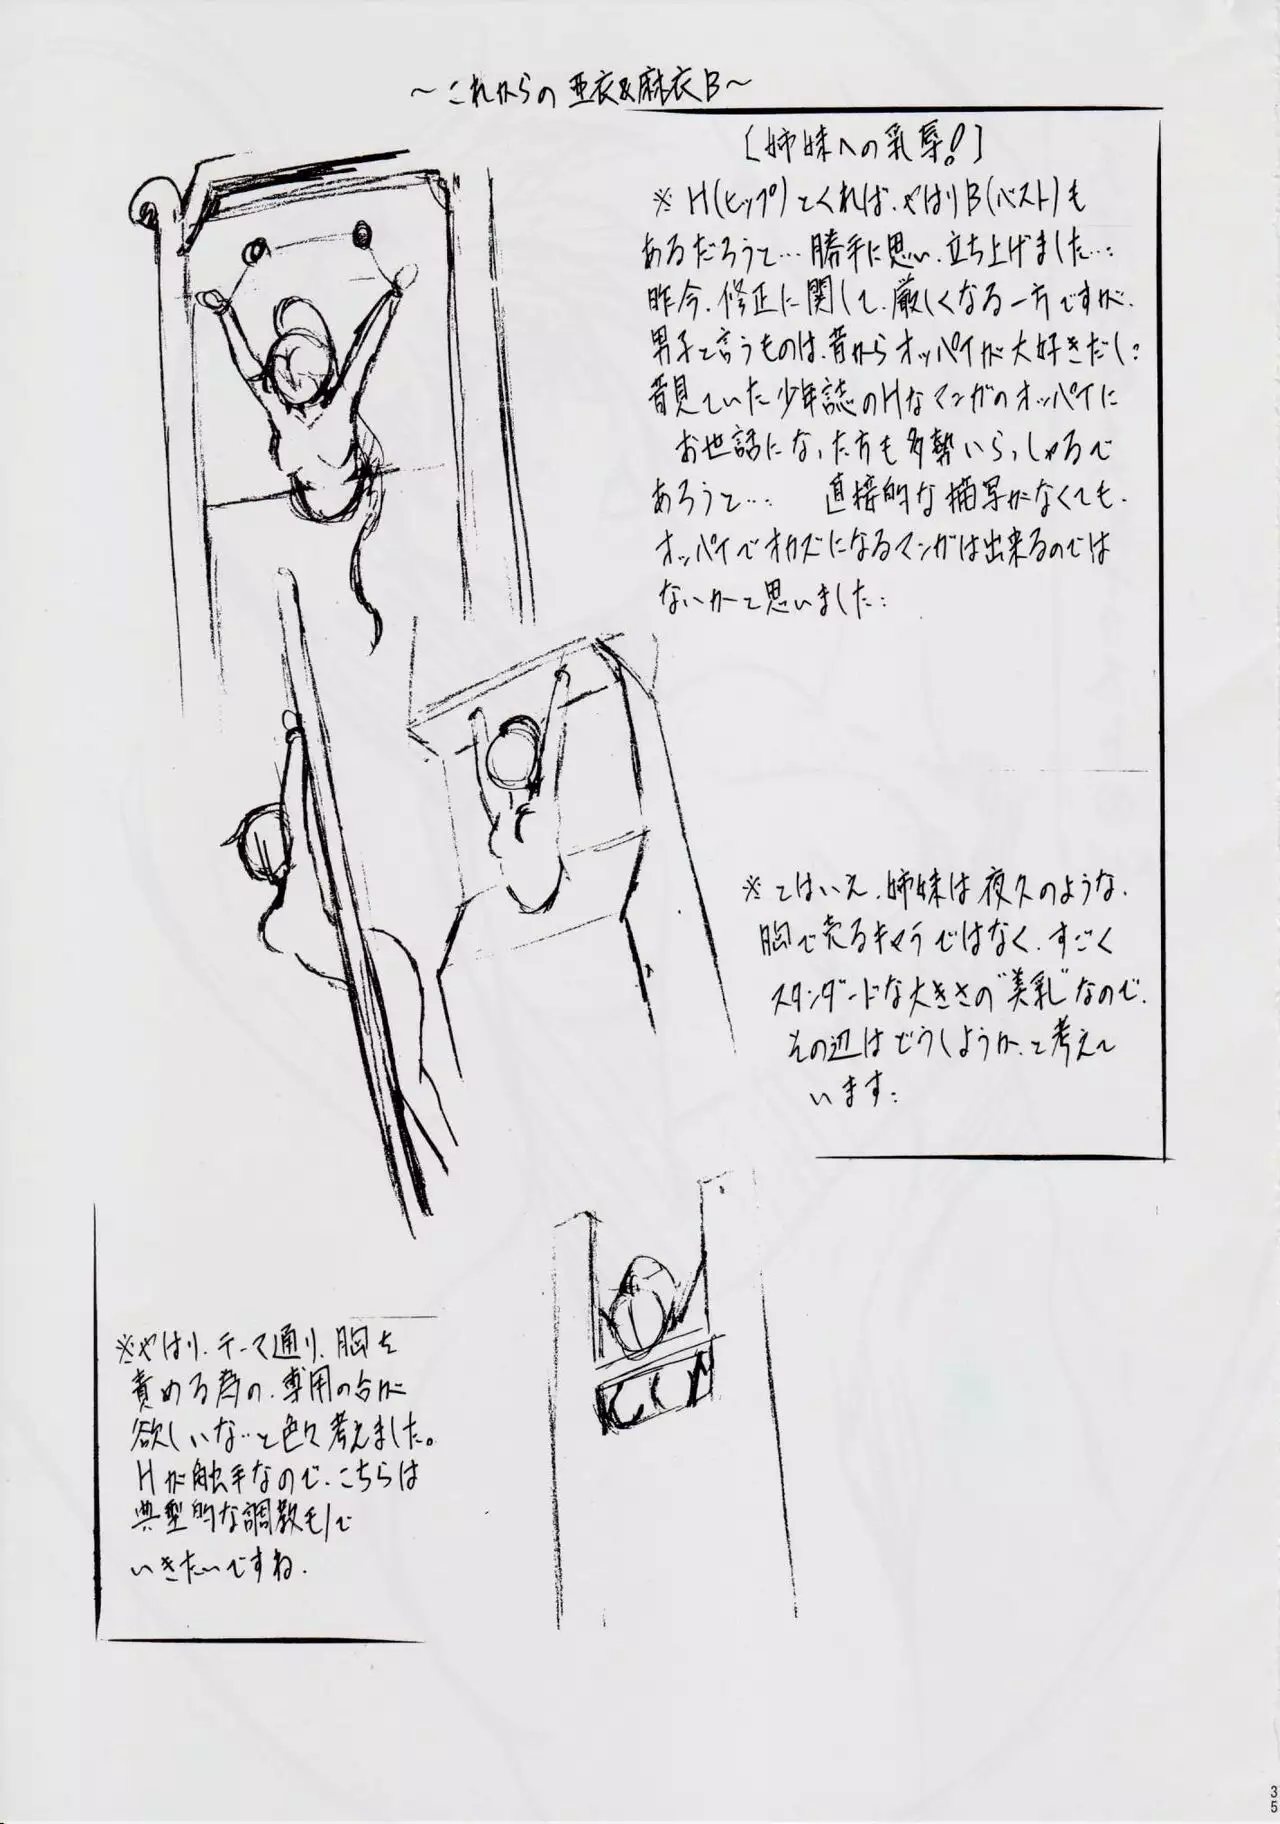 ～これからの亜衣&麻衣B～
［姉妹への乳辱!］
※H(ヒップ)とくれば、やはりB(バスト)も
あるだろうと…勝手に思い、立ち上げました…:
昨今、修正に関して、厳しくなる一方ですが、
男子と言うものは、昔からオッパイが大好きだし:
昔見ていた少年誌のHなマンガのオッパイに
お世話になった方も多勢いらっしゃるで
あろうと… 直接的な描写がなくても、
オッパイでオカズになるマンガは出来るのでは
ないかと思いました:
※とはいえ、姉妹は夜久のような、
胸で売るキャラではなく、すごく
スタンダードな大きさの"美乳"なので、
その辺はどうしようか、と考えて
います:
※やはり、テーマ通り、胸を
責める為の、専用の台が
欲しいな…と色々考えました。
Hが触手なので、こちらは
典型的な調教モノで
いきたいですね、
35